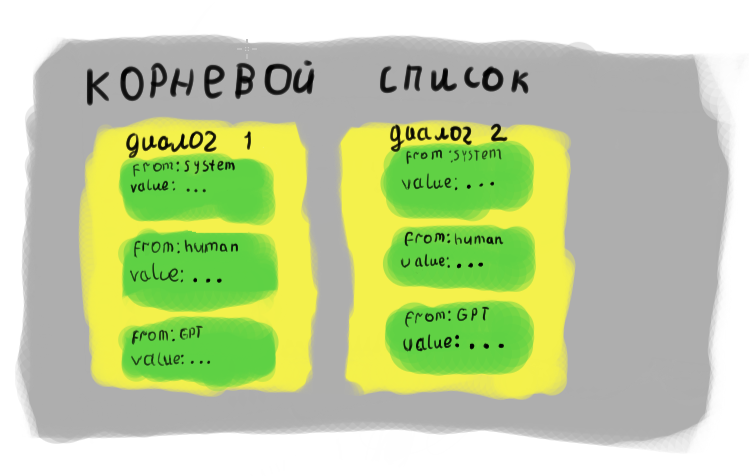 корневой список
диалог 1
from: system
value: ...
from: human
value: ...
from: GPT
value: ...
диалог 2
from: system
value: ...
from: human
value: ...
from: GPT
value: ...